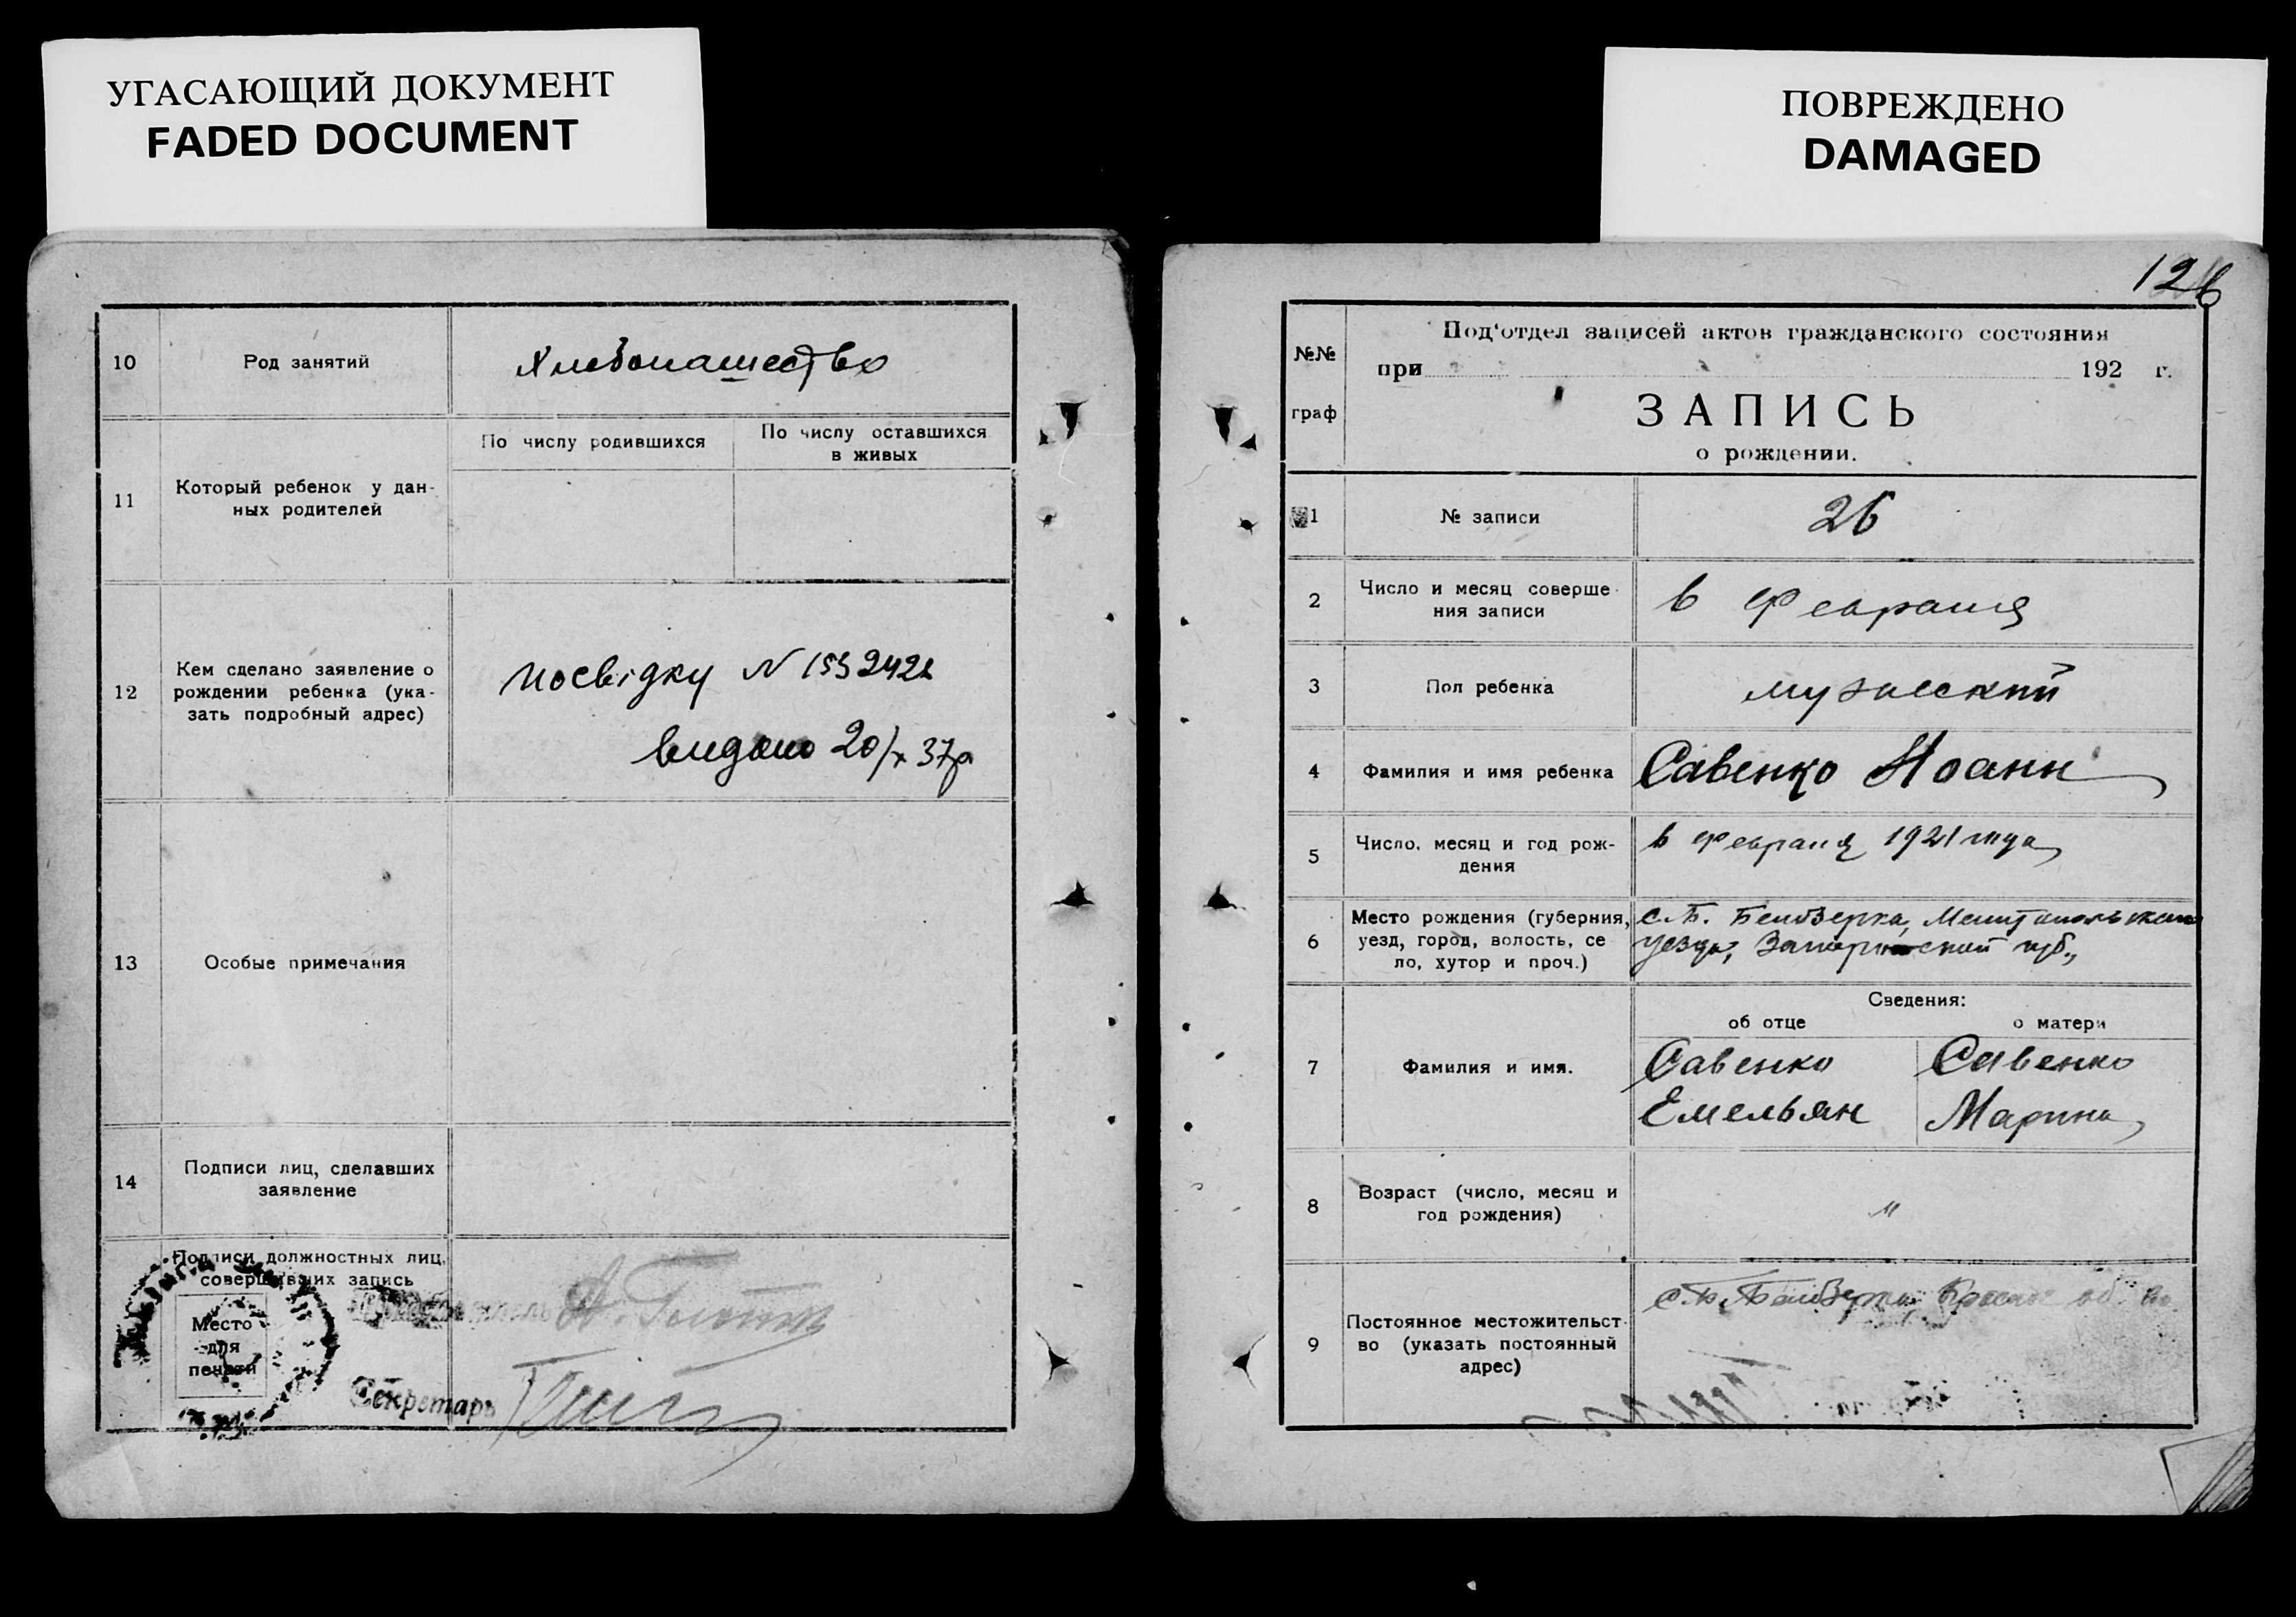 УГАСАЮЩИЙ ДОКУМЕНТ
FADED DOCUMENT
10
Род занятий
Хлебопашество
11
Который ребенок у дан-
ных родителей
По числу родившихся
По числу оставшихся
в живых
12
Кем сделано заявление о
рождении ребенка (ука-
зать подробный адрес)
посвідку N
видано 20/x 37р
13
Особые примечания
14
Подписи лиц, сделавших
заявление
Подписи должностных лиц,
совершивших запись
Место
для
печати
Секретарь
ПОВРЕЖДЕНО
DAMAGED
126
№№
граф
Под'отдел записей актов гражданского состояния
при 192 г.
ЗАПИСЬ
о рождении.
1
№ записи
26
2
Число и месяц соверше-
ния записи
6 Февраля
3
Пол ребенка
мужеский
4
Фамилия и имя ребенка
Савенко Иоанн
5
Число, месяц и год рож-
дения
6 февраля 1921 года
6
Место рождения (губерния,
уезд, город, волость, се
ло, хутор и проч.)
с. Б. Белозерка, Мелитопольскаго
уезда, губ.,
Сведения:
об отце
о матери
7
Фамилия и имя.
Савенко
Емельян
Савенко
Марина
8
Возраст (число, месяц и
год рождения)
"
9
Постоянное местожительст-
во (указать постоянный
адрес)
с. Б. Белозерка